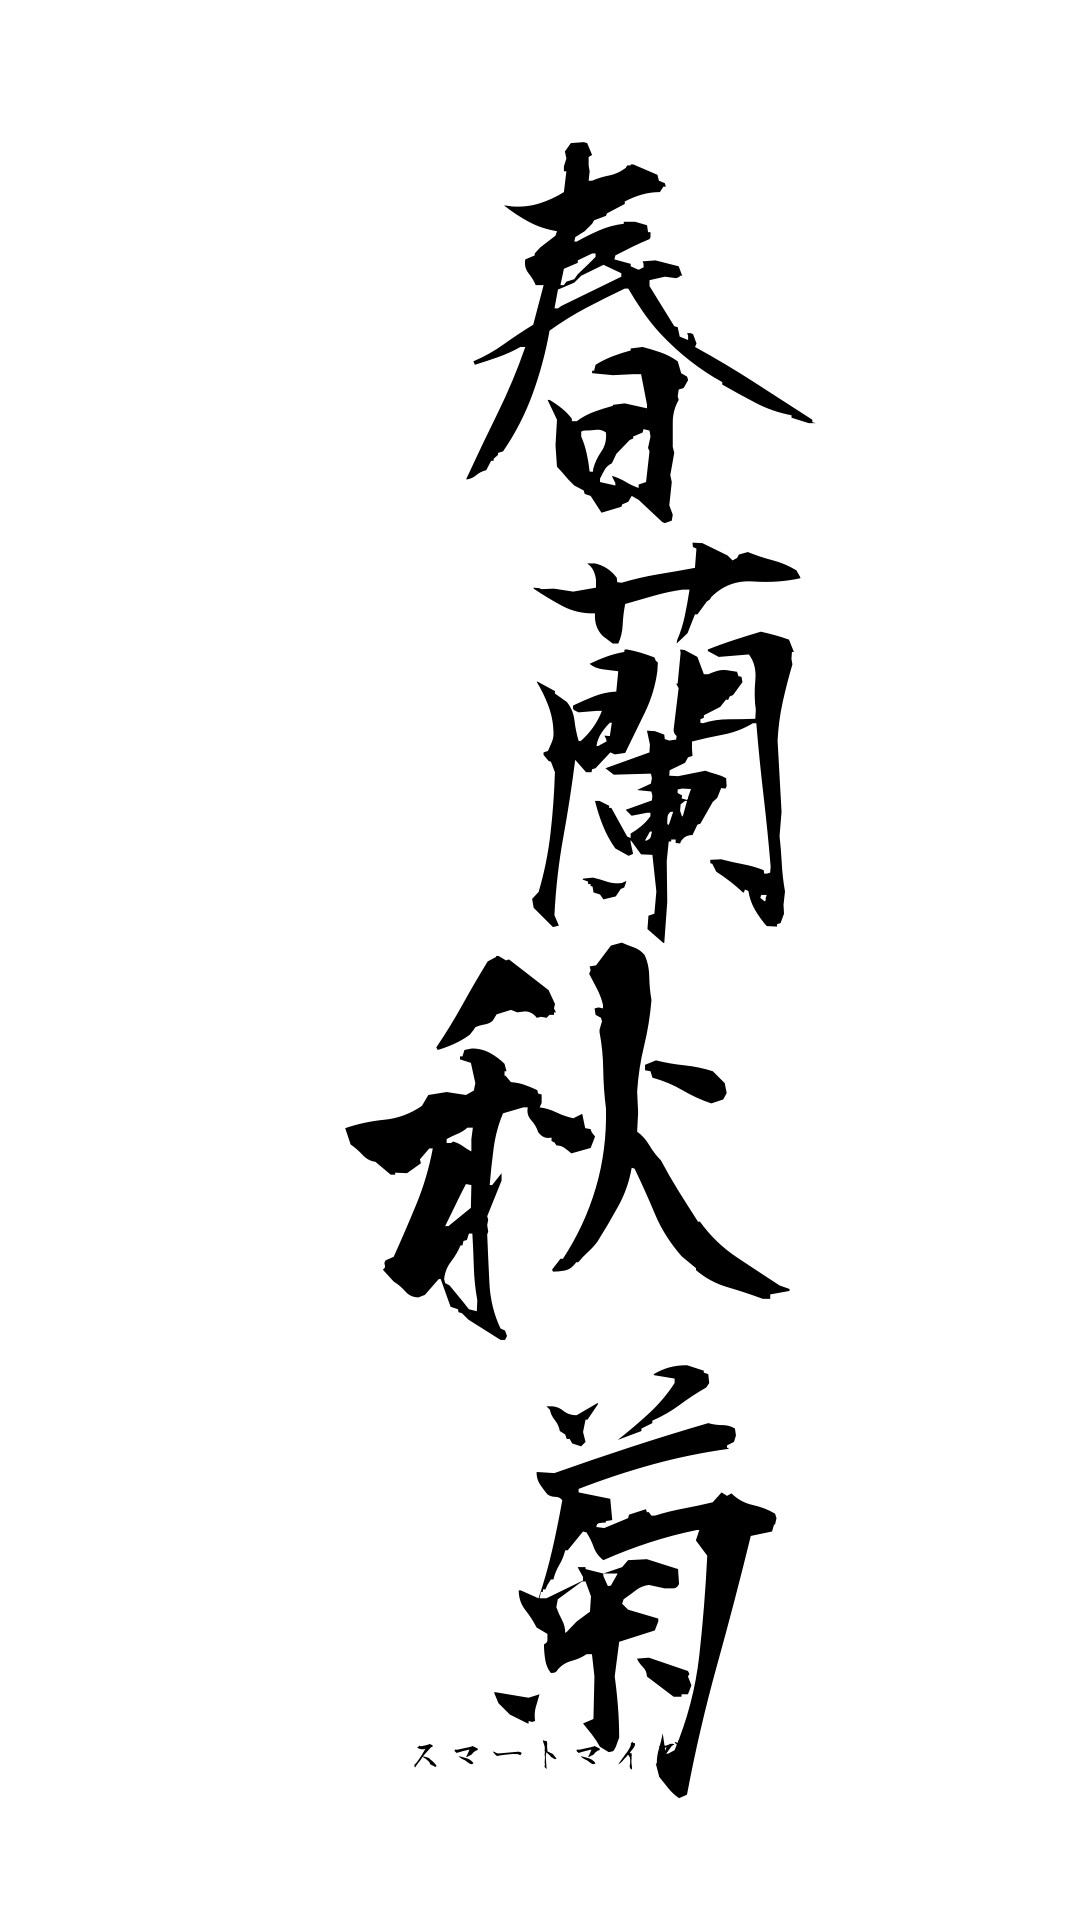 春蘭秋菊
スマートマイ